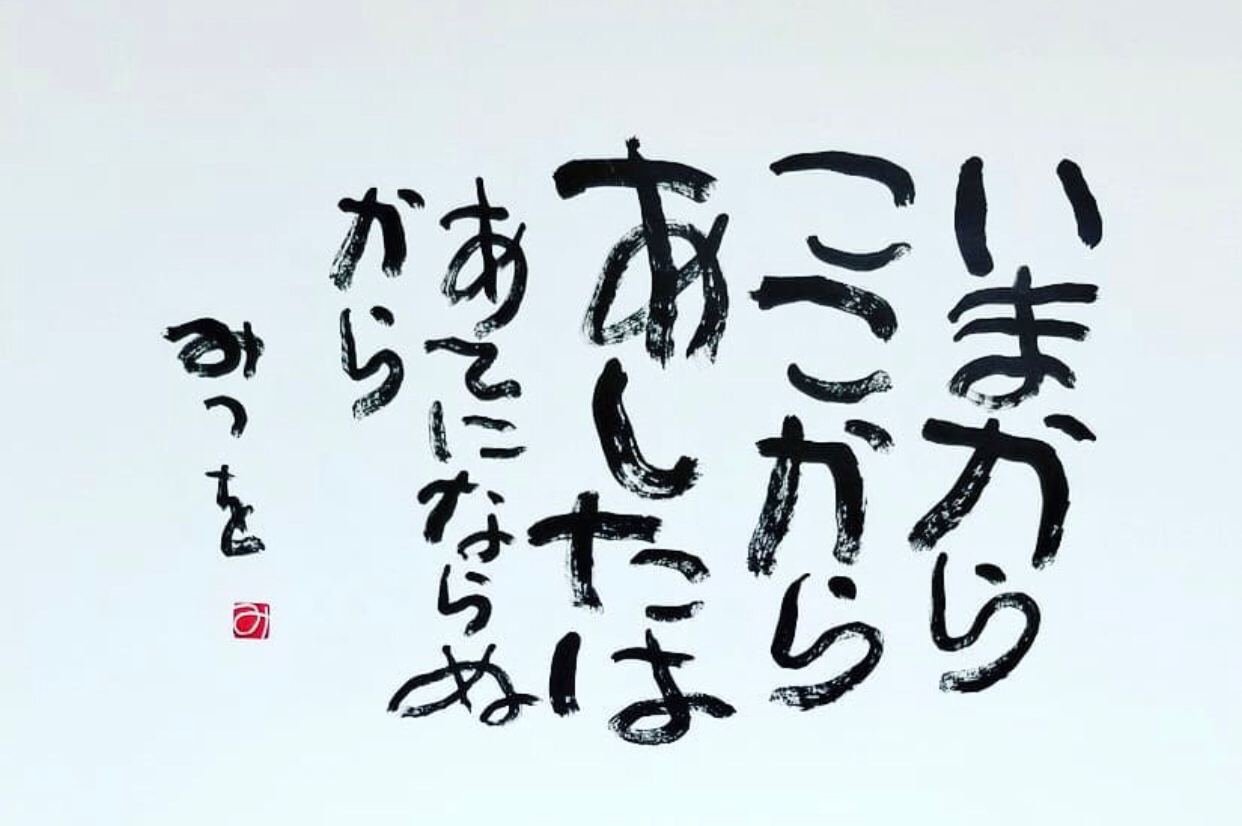 いまから
ここから
あしたは
あてにならぬ
から
みつを
み